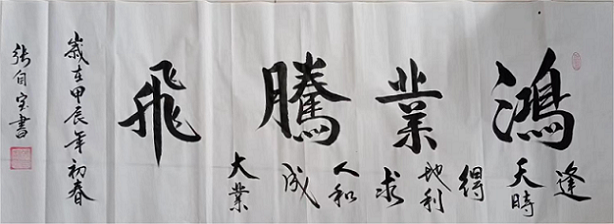 鴻業騰飛
逢天時得地利求人和成大業
歲在甲辰年初春
張自宝書